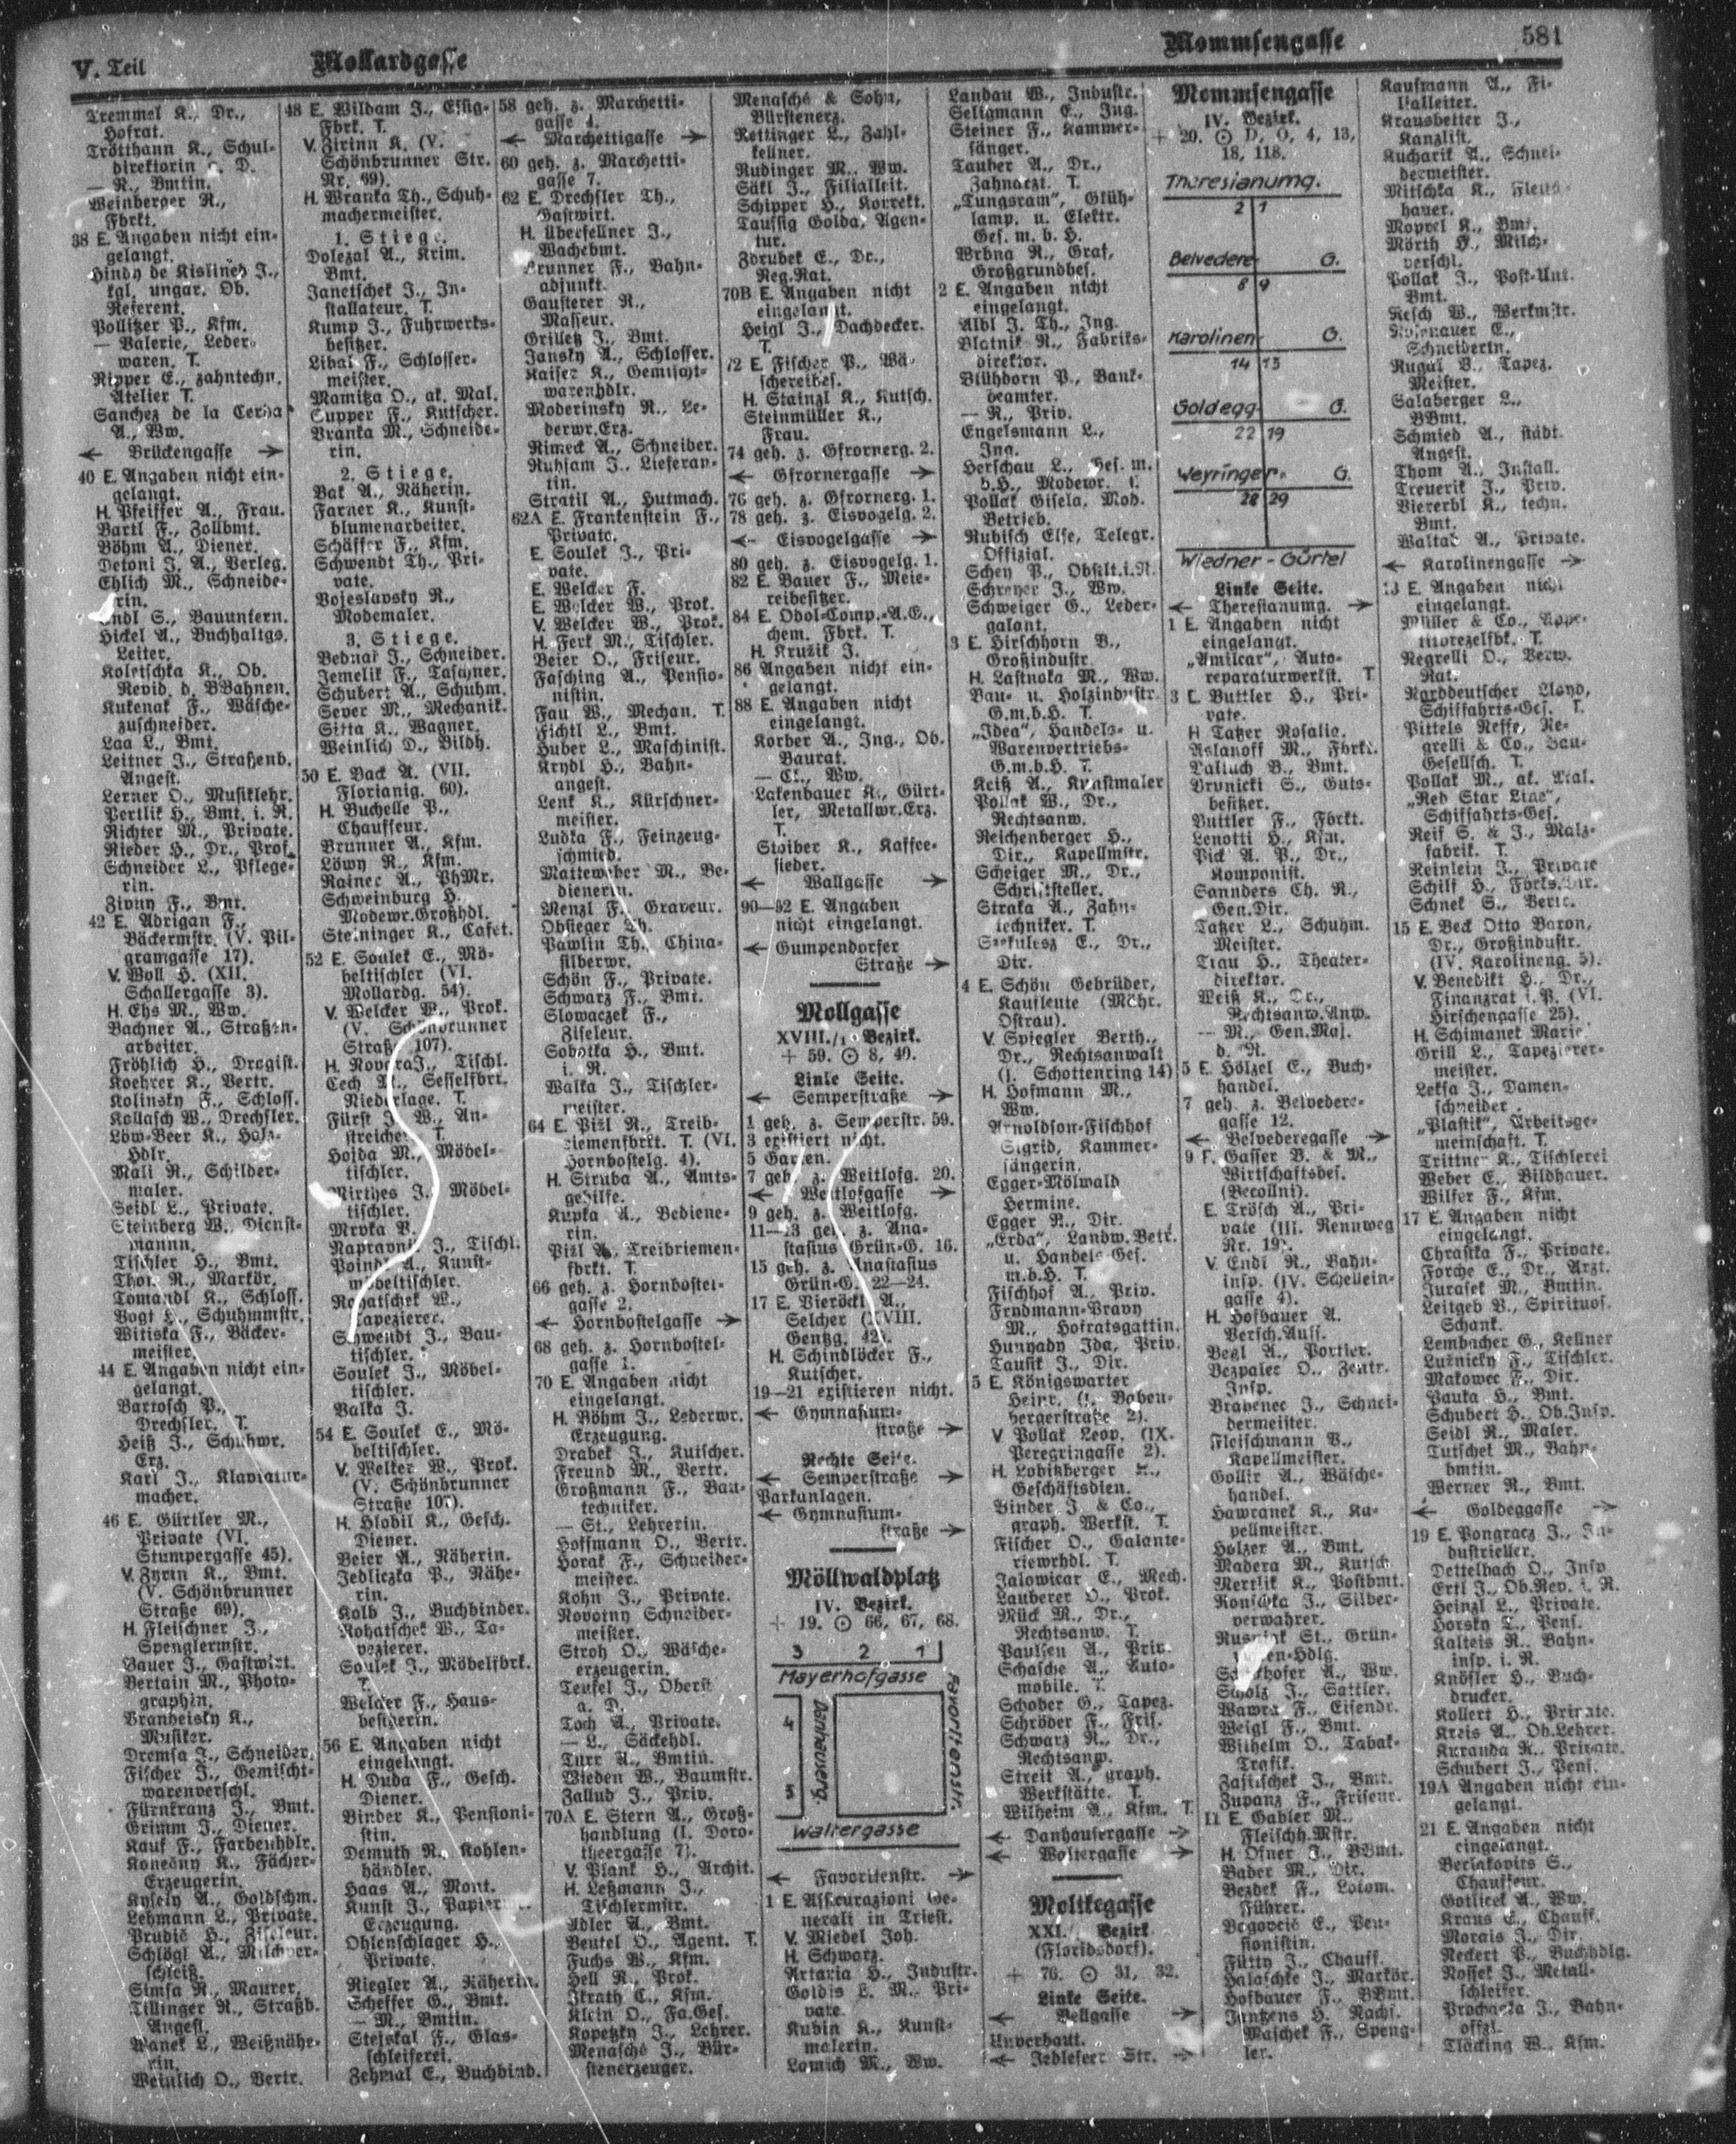 V. Teil
Mollardgasse
Mommsengasse
581
Tremmel K., Dr.,
Hofrat.
Trötthann K., Schul-
direktorin a. D.
— R., Bmtin.
Weinberger R.,
Fbrkt.
38 E. Angaben nicht ein-
gelangt.
Hindy de Kislineh J.,
kgl. ungar. Ob.
Referent.
Pollitzer P., Kfm.
— Valerie, Leder-
waren. T.
Ripper E., zahntechn.
Atelier T.
Sanchez de la Cerda
A., Ww.
← Brückengasse →
40 E. Angaben nicht ein-
gelangt.
H. Pfeiffer A., Frau.
Bartl F., Zollbmt.
Böhm A., Diener.
Detoni J. A., Verleg.
Ehlich M., Schneide-
rin.
Endl S., Bauuntern.
Hickel A., Buchhaltgs.
Leiter.
Koletschka K., Ob.
Revid. d. BBahnen.
Kukenak F., Wäsche-
zuschneider.
Laa L., Bmt.
Leitner J., Straßenb.
Angest.
Lerner O., Musiklehr.
Pertlik H., Bmt. i. R.
Richter M., Private.
Rieder H., Dr., Prof.
Schneider L., Pflege-
rin.
Zivny F., Bmt.
42 E. Adrigan F.,
Bäckermstr. (V. Pil-
gramgasse 17).
V. Woll H. (XII.
Schallergasse 3).
H. Ehs M., Ww.
Bachner A., Straßen-
arbeiter.
Fröhlich H., Drogist.
Koehrer K., Vertr.
Kolinsky F., Schloss.
Kollasch W., Drechsler.
Löw-Beer K., Holz-
hdlr.
Mali R., Schilder-
maler.
Seidl L., Private.
Steinberg W., Dienst-
mannn.
Tischler H., Bmt.
Thon R., Markör.
Tomandl K., Schloss.
Vogt L., Schuhmmstr.
Witiska F., Bäcker-
meister.
44 E. Angaben nicht ein-
gelangt.
Bartosch P.,
Drechsler. T.
Heiß J., Schuhwr.
Erz.
Karl J., Klaviatur-
macher.
46 E. Gürtler M.,
Private (VI.
Stumpergasse 45).
V. Zyrin K., Bmt.
(V. Schönbrunner
Straße 69).
H. Fleischner J.,
Spenglermstr.
Bauer J., Gastwirt.
Bertain M., Photo-
graphin.
Brandeisky K.,
Musiker.
Dremsa J., Schneider.
Fischer J., Gemischt-
warenverschl.
Fürnkranz J., Bmt.
Grimm J., Diener.
Kauf F., Farbenhdlr.
Konečny K., Fächer-
Erzeugerin.
Kysely A., Goldschm.
Lehmann L., Private.
Prudič H., Ziseleur.
Schlögl A., Milchver-
schleiß.
Simsa R., Maurer.
Tillinger R., Straßb.
Angest.
Wanek L., Weißnähe-
rin.
Weinlich O., Vertr.
48 E. Wildam J., Essig-
Fbrk. T.
V. Zirinn K. (V.
Schönbrunner Str.
Nr. 69).
H. Wranka Th., Schuh-
machermeister.
1. Stiege.
Dolezal A., Krim.
Bmt.
Janetschek J., In-
stallateur. T.
Kump J., Fuhrwerks-
besitzer.
Libal F., Schlosser-
meister.
Mamitza O., ak. Mal.
Supper F., Kutscher.
Vranka M., Schneide-
rin.
2. Stiege.
Bak A., Näherin.
Farner K., Kunst-
blumenarbeiter.
Schäffer F., Kfm.
Schwendt Th., Pri-
vate.
Vojeslavsky R.,
Modemaler.
3. Stiege.
Bednar J., Schneider.
Jemelik F., Taschner.
Schubert A., Schuhm.
Sever M., Mechanik.
Sitta K., Wagner.
Weinlich D., Bildh.
50 E. Back A. (VII.
Florianig. 60).
H. Buchelle P.,
Chauffeur.
Brunner A., Kfm.
Löwy R., Kfm.
Rainer A., PhMr.
Schweinburg H.,
Modewr.Großhdl.
Steininger K., Cafet.
52 E. Soulek E., Mö-
beltischler (VI.
Mollardg. 54).
V. Welcker W., Prok.
(V. Schönbrunner
Straße 107).
H. Novotra J., Tischl.
Cech M., Sesselfbrk.
Niederlage. T.
Fürst J. W., An-
streicher. T.
Hojda M., Möbel-
tischler.
Mirthes J., Möbel-
tischler.
Mrvka V.
Napravnik J., Tischl.
Poindl A., Kunst-
möbeltischler.
Rohatschek W.,
Tapezierer.
Schwendt J., Bau-
tischler.
Soulek J., Möbel-
tischler.
Valka J.
54 E. Soulek E., Mö-
beltischler.
V. Welker W., Prok.
(V. Schönbrunner
Straße 107).
H. Hlobil K., Gesch.
Diener.
Beier A., Näherin.
Jedliczka P., Nähe-
rin.
Kolb J., Buchbinder.
Rohatschek W., Ta-
pezierer.
Soulek J., Möbelfbrk.
T.
Welcker F., Haus-
besitzerin.
56 E. Angaben nicht
eingelangt.
H. Duda F., Gesch.
Diener.
Binder K., Pensioni-
stin.
Demuth R., Kohlen-
händler.
Haas A., Mont.
Kunst J., Papier
Erzeugung.
Ohlenschlager H.,
Private.
Riegler A., Näherin.
Scheffer G., Bmt.
— M., Bmtin.
Stejskal F., Glas-
schleiferei.
Zehmal E., Buchbind.
58 geh. z. Marchetti-
gasse 4.
← Marchettigasse →
60 geh. z. Marchetti-
gasse 7.
62 E. Drechsler Th.,
Gastwirt.
H. Überfellner J.,
Wachebmt.
Brunner F., Bahn-
adjunkt.
Gausterer R.,
Masseur.
Grilletz J., Bmt.
Jansky A., Schlosser.
Kaiser K., Gemischt-
warenhdlr.
Moderinsky R., Le-
derwr.Erz.
Rimeck A., Schneider.
Ruhsam J., Lieferan-
tin.
Stratil A., Hutmach.
62A E. Frankenstein F.,
Private.
E. Soulek J., Pri-
vate.
E. Welcker F.
E. Welcker W., Prok.
V. Welcker W., Prok.
H. Ferk M., Tischler.
Beier O., Friseur.
Fasching A., Pensio-
nistin.
Fau W., Mechan. T.
Fichtl L., Bmt.
Huber L., Maschinist.
Krydl H., Bahn-
angest.
Lenk K., Kürschner-
meister.
Ludka F., Feinzeug-
schmied.
Matteweber M., Be-
dienerin.
Menzl F., Graveur.
Obsieger Th.
Pawlin Th., China-
silberwr.
Schön F., Private.
Schwarz F., Bmt.
Slowaczek F.,
Ziseleur.
Sobotka H., Bmt.
i. R.
Walka J., Tischler-
meister.
64 E. Pizl R., Treib-
riemenfbrkt. T. (VI.
Hornbostelg. 4).
H. Struba A., Amts-
gehilfe.
Kupka A., Bediene-
rin.
Pizl A., Treibriemen-
fbrkt. T.
66 geh. z. Hornbostel-
gasse 2.
← Hornbostelgasse →
68 geh. z. Hornbostel-
gasse 1.
70 E. Angaben nicht
eingelangt.
H. Böhm J., Lederwr.
Erzeugung.
Drabek J., Kutscher.
Freund M., Vertr.
Großmann F., Bau-
techniker.
— St., Lehrerin.
Hoffmann O., Vertr.
Horak F., Schneider-
meister.
Kohn J., Private.
Novotny Schneider-
meister.
Stroh O., Wäsche-
erzeugerin.
Teufel J., Oberst
a. D.
Toch A., Private.
— L., Säckehdl.
Turr A., Bmtin.
Wieden W., Baumstr.
Zallud J., Priv.
70A E. Stern A., Groß-
handlung (I. Doro-
theergasse 7).
V. Plank H., Archit.
H. Leßmann J.,
Tischlermstr.
Adler A., Bmt.
Beutel O., Agent. T.
Fuchs W., Kfm.
Hell R., Prok.
Jkrath C., Kfm.
Klein O., Fa.Ges.
Kopetzky J., Lehrer.
Menasché J., Bür-
stenerzeuger.
Menasché & Sohn,
Bürstenerz.
Rettinger L., Zahl-
kellner.
Rudinger M., Ww.
Säkl J., Filialleit.
Schipper H., Korrekt.
Taussig Golda, Agen-
tur.
Zdrubek E., Dr.,
Reg.Rat.
70B E. Angaben nicht
eingelangt.
Heigl J., Dachdecker.
T.
72 E. Fischer P., Wä-
schereibes.
H. Stainzl K., Kutsch.
Steinmüller K.,
Frau.
74 geh. z. Gfrornerg. 2.
← Gfrornergasse →
76 geh. z. Gfrornerg. 1.
78 geh. z. Eisvogelg. 2.
← Eisvogelgasse →
80 geh. z. Eisvogelg. 1.
82 E. Bauer F., Meie-
reibesitzer.
84 E. Odol-Comp.-A.G.,
chem. Fbrk. T.
H. Kruzik J.
86 Angaben nicht ein-
gelangt.
88 E. Angaben nicht
eingelangt.
Korber A., Ing., Ob.
Baurat.
— Cl., Ww.
Lakenbauer K., Gürt-
ler, Metallwr.Erz.
T.
Stoiber K., Kaffee-
sieder.
← Wallgasse →
90—92 E. Angaben
nicht eingelangt.
← Gumpendorfer
Straße →
Mollgasse
XVIII./1 Bezirk.
+ 59. ⊙ 8, 40.
Linke Seite.
← Semperstraße →
1 geh. z. Semperstr. 59.
3 existiert nicht.
5 Garten.
7 geh. z. Weitlofg. 20.
← Weitlofgasse →
9 geh. z. Weitlofg.
11—13 geh. z. Ana-
stasius Grün-G. 16.
15 geh. z. Anastasius
Grün-G. 22—24.
17 E. Vieröckl A.,
Selcher (XVIII.
Gentzg. 42).
H. Schindlöcker F.,
Kutscher.
19—21 existieren nicht.
← Gymnasium-
straße →
Rechte Seite.
← Semperstraße →
Parkanlagen.
← Gymnasium-
straße →
Möllwaldplatz
IV. Bezirk.
+ 19. ⊙ 66, 67, 68.
3 2 1
Mayerhofgasse
4
Danhauserg.
Favoritenstr.
5
Waltergasse
← Favoritenstr. →
1 E. Assicurazioni Ge-
nerali in Triest.
V. Miedel Joh.
H. Schwarz.
Artaria H., Industr.
Goldis L. M., Pri-
vate.
Kubin K., Kunst-
malerin.
Lomich M., Ww.
Landau W., Industr.
Seligmann E., Ing.
Steiner F., Kammer-
sänger.
Tauber A., Dr.,
Zahnarzt. T.
„Tungsram“, Glüh-
lamp. u. Elektr.
Ges. m. b. H.
Wrbna R., Graf,
Großgrundbes.
2 E. Angaben nicht
eingelangt.
Albl J. Th., Ing.
Blatnik R., Fabriks-
direktor.
Blühdorn P., Bank-
beamter.
— R., Priv.
Engelsmann L.,
Ing.
Herschau L., Ges. m.
b.H., Modewr. T.
Pollak Gisela, Mod.
Betrieb.
Rubisch Else, Telegr.
Offizial.
Schey P., Obstlt.i.R.
Schreyer J., Ww.
Schweiger G., Leder-
galant.
3 E. Hirschhorn B.,
Großindustr.
H. Lastnoka M., Ww.
Bau- u. Holzindustr.
G.m.b.H. T.
„Idea“, Handels- u.
Warenvertriebs-
G.m.b.H. T.
Keiß A., Kunstmaler
Pollak W., Dr.,
Rechtsanw.
Reichenberger H.,
Dir., Kapellmstr.
Scheiger M., Dr.,
Schriftsteller.
Straka A., Zahn-
techniker. T.
Szekulesz E., Dr.,
Dir.
4 E. Schön Gebrüder,
Kaufleute (Mähr.
Ostrau).
V. Spiegler Berth.,
Dr., Rechtsanwalt
(I. Schottenring 14)
H. Hofmann M.,
Ww.
Arnoldson-Fischhof
Sigrid, Kammer-
sängerin.
Egger-Mölwald
Hermine.
Egger R., Dir.
„Erda“, Landw.Betr.
u. Handels-Ges.
m.b.H. T.
Fischhof A., Priv.
Freudmann-Bravy
M., Hofratsgattin.
Hunyady Ida, Priv.
Tausik J., Dir.
5 E. Königswarter
Heinr. (I. Baben-
bergerstraße 2).
V. Pollak Leop. (IX.
Peregringasse 2).
H. Lobitzberger K.,
Geschäftsdien.
Binder J. & Co.,
graph. Werkst. T.
Fischer O., Galante-
riewrhdl. T.
Jalowicar E., Mech.
Lauberer O., Prok.
Mück M., Dr.,
Rechtsanw. T.
Paulsen A., Priv.
Schasche A., Auto-
mobile. T.
Schober G., Tapez.
Schröder F., Fris.
Schwarz R., Dr.,
Rechtsanw.
Streit A., graph.
Werkstätte. T.
Wilheim A., Kfm. T.
← Danhausergasse →
← Woltergasse →
Moltkegasse
XXI./ Bezirk
(Floridsdorf).
+ 76. ⊙ 31, 32.
Linke Seite.
← Bellgasse →
Unverbaut.
← Jedleseer Str. →
Mommsengasse
IV. Bezirk.
+ 20. ⊙ D, O, 4, 13,
18, 118.
Theresianumg.
2 1
Belvedere G.
8 9
Karolinen G.
14 13
Goldegg G.
22 19
Weyringer G.
28 29
Wiedner-Gürtel
Linke Seite.
← Theresianumg. →
1 E. Angaben nicht
eingelangt.
„Amilcar“, Auto-
reparaturwerkst. T
3 E. Buttler H., Pri-
vate.
H Tatzer Rosalia.
Aslanoff M., Fbrkt.
Baltuch B., Bmt.
Brunicki S., Guts-
besitzer.
Buttler F., Fbrkt.
Lenotti H., Kfm.
Pick A. P., Dr.,
Komponist.
Saunders Ch. R.,
Gen.Dir.
Tatzer L., Schuhm.
Meister.
Trau H., Theater-
direktor.
Weiß K., Dr.,
Rechtsanw.Anw.
— M., Gen.Maj.
d. R.
5 E. Hölzel E., Buch-
handel.
7 geh. z. Belvedere-
gasse 12.
← Belvederegasse →
9 E. Gasser B. & M.,
Wirtschaftsbes.
(Becollni).
E. Trösch A., Pri-
vate (III. Rennweg
Nr. 19).
V. Endl R., Bahn-
insp. (IV. Schellein-
gasse 4).
H. Hofbauer A.
Versch.Auff.
Begl A., Portier.
Bezpalec O., Zentr.
Insp.
Brabenec J., Schnei-
dermeister.
Fleischmann B.,
Kapellmeister.
Gollir A., Wäsche-
handel.
Hawranek K., Ka-
pellmeister.
Holzer A., Bmt.
Madera M., Kutsch.
Mertlik K., Postbmt.
Rouschka J., Silber-
verwahrer.
Rusniok St., Grün-
waren-Hdlg.
Schhofer A., Ww.
Scholz J., Sattler.
Wawra F., Eisendr.
Weigl F., Bmt.
Wilhelm O., Tabak-
Trafik.
Zasitschek J., Bmt.
Zupanz F., Friseur.
11 E. Gabler M.,
Fleischh.Mstr.
H. Ofner J., BBmt.
Bader M., Dir.
Bezdek F., Lokom.
Führer.
Bogovcić E., Pen-
sionistin.
Fütty J., Chauff.
Halaschke J., Markör.
Hofbauer F., BBmt.
Juntzens H. Nachf.
Maschek F., Speng-
ler.
Kaufmann A., Fi-
lialleiter.
Krausbetter J.,
Kanzlist.
Kucharik A., Schnei-
dermeister.
Mitschka K., Fleisch-
hauer.
Moprel K., Bmt.
Mörth H., Milch-
verschl.
Pollak J., Post-Unt.
Bmt.
Resch W., Werkmstr.
Rosenauer E.,
Schneiderin.
Rugal B., Tapez.
Meister.
Salaberger L.,
BBmt.
Schmied A., städt.
Angest.
Thom A., Install.
Treuerik J., Priv.
Viererbl K., techn.
Bmt.
Waltas A., Private.
← Karolinengasse →
13 E. Angaben nicht
eingelangt.
Müller & Co., Kopp-
morezelfbk. T.
Negrelli O., Verw.
Rat.
Norddeutscher Lloyd,
Schiffahrts-Ges. T.
Pittels Neffe, Ne-
grelli & Co., Bau-
Gesellsch. T.
Pollak M., ak. Mal.
„Red Star Line“,
Schiffahrts-Ges.
Reif S. & J., Malz-
fabrik. T.
Reinlein J., Private
Schilf H., Fbrks.Dir.
Schnek S., Vertr.
15 E. Beck Otto Baron,
Dr., Großindustr.
(IV. Karolineng. 5).
V. Benedikt H., Dr.,
Finanzrat i.P. (VI.
Hirschengasse 25).
H. Schimanek Marie
Grill L., Tapezierer-
meister.
Leksa J., Damen-
schneider
„Plastik“, Arbeitsge-
meinschaft. T.
Trittner K., Tischlerei
Weber E., Bildhauer.
Wilfer F., Kfm.
17 E. Angaben nicht
eingelangt.
Chrastka F., Private.
Forche E., Dr., Arzt.
Jurasek M., Bmtin.
Leitgeb B., Spirituos.
Schank.
Lembacher G., Kellner
Lužnicky F., Tischler.
Makowec F., Dir.
Pauka H., Bmt.
Schubert H., Ob.Insp.
Seidl R., Maler.
Tutschek M., Bahn-
bmtin.
Werner R., Bmt.
← Goldeggasse →
19 E. Pongracz J., In-
dustrieller.
Dettelbach O., Insp
Ertl J., Ob.Rev. i. R.
Heinzl L., Private.
Horsky T., Pens.
Kalteis R., Bahn-
insp. i. R.
Knösler H., Buch-
drucker.
Kollert H., Private.
Kreis A., Ob.Lehrer.
Kuranda R., Private.
Schubert J., Pens.
19A Angaben nicht ein-
gelangt.
21 E. Angaben nicht
eingelangt.
Berlakovits S.,
Chauffeur.
Gotlicek A., Ww.
Kraus E., Chauff.
Morais J., Dir.
Neckert P., Buchhdlg.
Nossek J., Metall-
schleifer.
Prochaska J., Bahn-
offzl.
Tläcking W., Kfm.